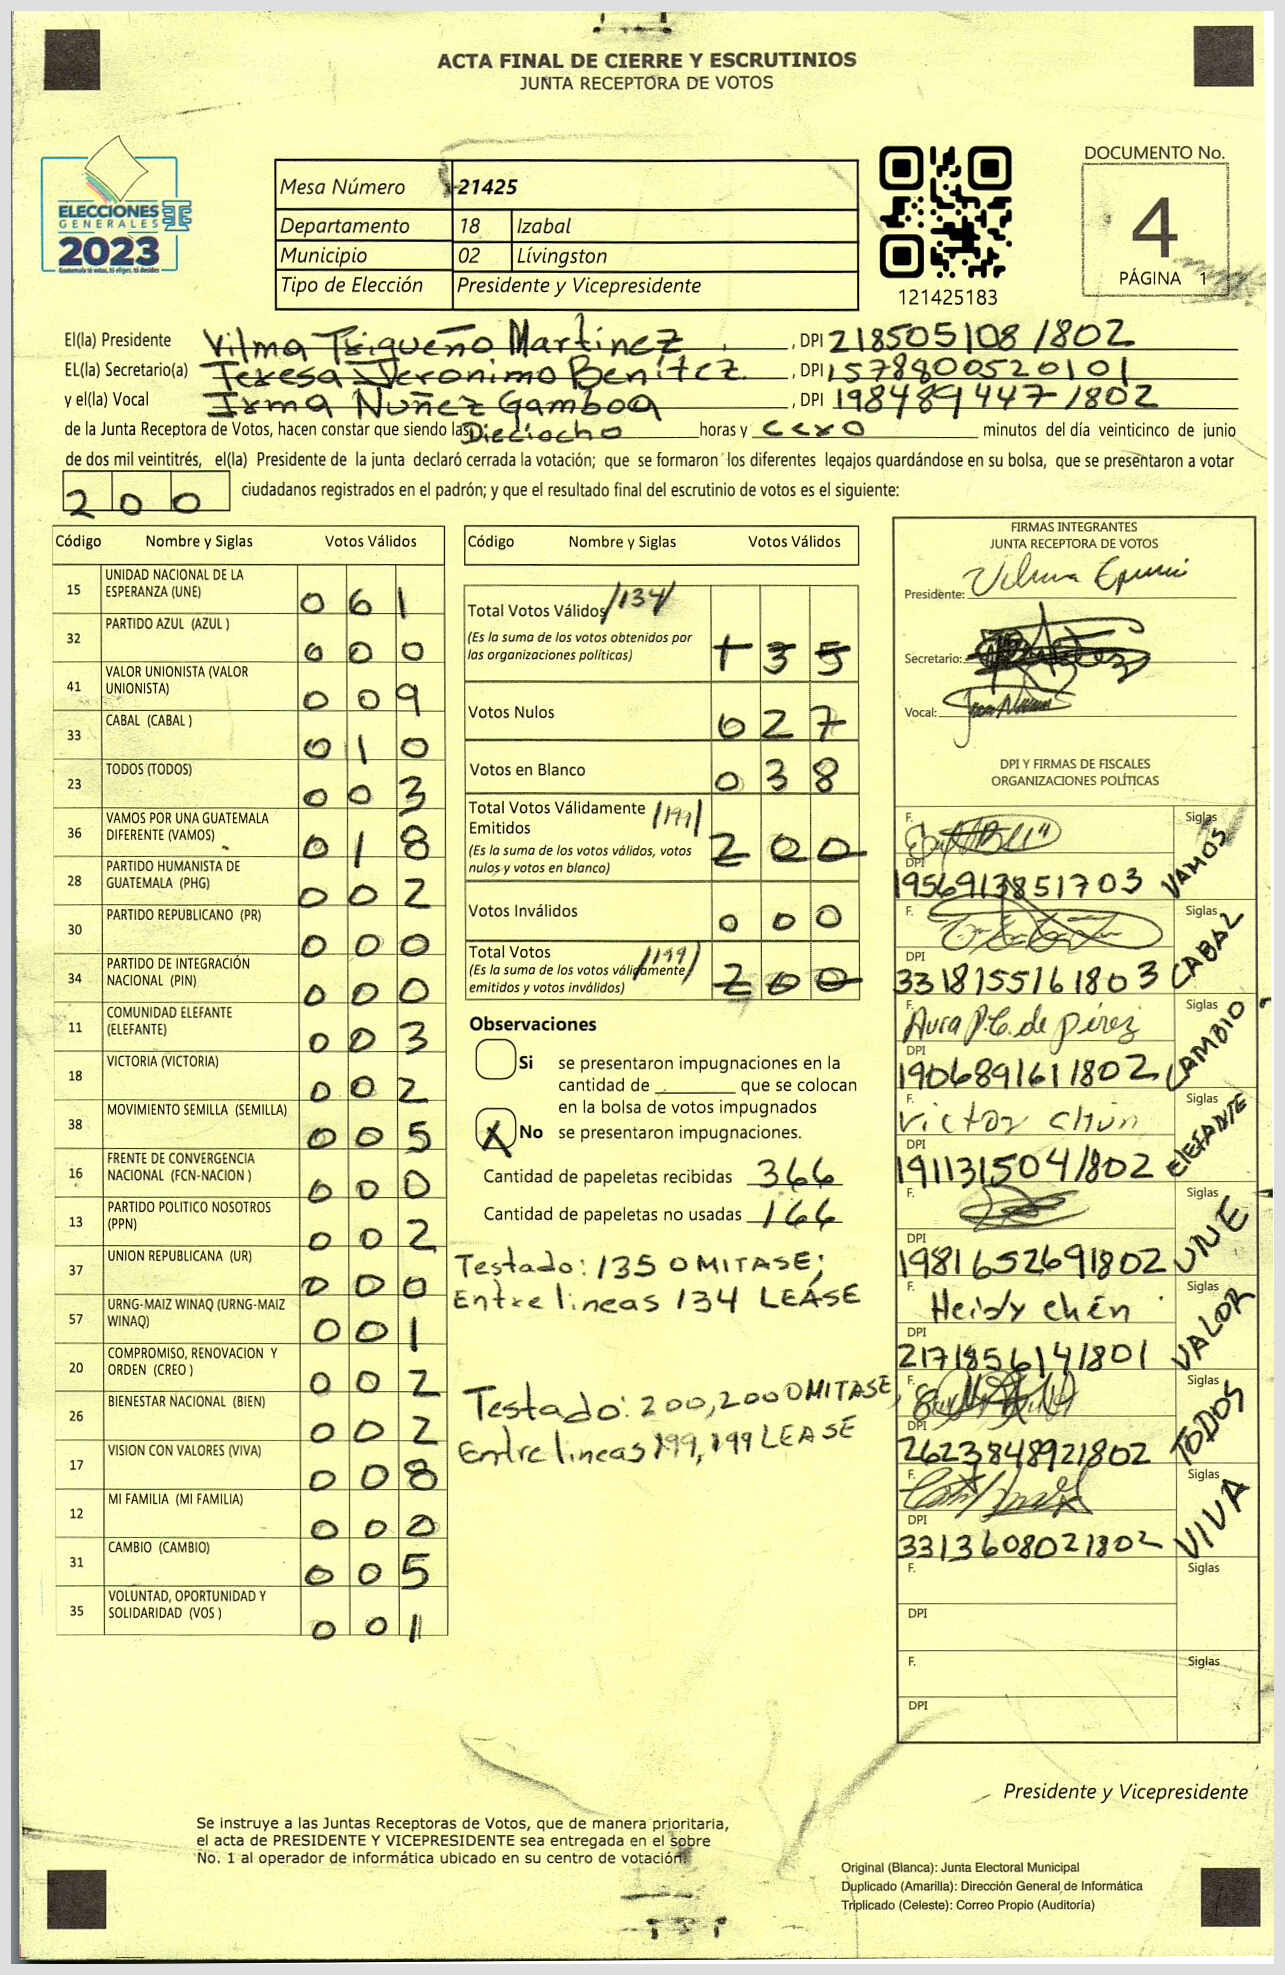 ACTA FINAL DE CIERRE Y ESCRUTINIOS
JUNTA RECEPTORA DE VOTOS
ELECCIONES
GENERALES
2023
Guatemala tú votas, tú eliges, tú decides
Mesa Número 21425
Departamento 18 Izabal
Municipio 02 Lívingston
Tipo de Elección Presidente y Vicepresidente
121425183
DOCUMENTO No.
4
PÁGINA 1
El(la) Presidente Vilma Trigueño Martinez, DPI 218505108 1802
EL(la) Secretario(a) Teresa Jeronimo Benitez, DPI 1578800520101
y el(la) Vocal Irma Nuñez Gamboa, DPI 198489447 1802
de la Junta Receptora de Votos, hacen constar que siendo las Dieciocho horas y cero minutos del día veinticinco de junio
de dos mil veintitrés, el(la) Presidente de la junta declaró cerrada la votación; que se formaron los diferentes legajos guardándose en su bolsa, que se presentaron a votar
200 ciudadanos registrados en el padrón; y que el resultado final del escrutinio de votos es el siguiente:
Código Nombre y Siglas Votos Válidos
15 UNIDAD NACIONAL DE LA
ESPERANZA (UNE) 061
32 PARTIDO AZUL (AZUL ) 000
41 VALOR UNIONISTA (VALOR
UNIONISTA) 009
33 CABAL (CABAL ) 010
23 TODOS (TODOS) 003
36 VAMOS POR UNA GUATEMALA
DIFERENTE (VAMOS) 018
28 PARTIDO HUMANISTA DE
GUATEMALA (PHG) 002
30 PARTIDO REPUBLICANO (PR) 000
34 PARTIDO DE INTEGRACIÓN
NACIONAL (PIN) 000
11 COMUNIDAD ELEFANTE
(ELEFANTE) 003
18 VICTORIA (VICTORIA) 002
38 MOVIMIENTO SEMILLA (SEMILLA) 005
16 FRENTE DE CONVERGENCIA
NACIONAL (FCN-NACION ) 000
13 PARTIDO POLITICO NOSOTROS
(PPN) 002
37 UNION REPUBLICANA (UR) 000
57 URNG-MAIZ WINAQ (URNG-MAIZ
WINAQ) 001
20 COMPROMISO, RENOVACION Y
ORDEN (CREO ) 002
26 BIENESTAR NACIONAL (BIEN) 002
17 VISION CON VALORES (VIVA) 008
12 MI FAMILIA (MI FAMILIA) 000
31 CAMBIO (CAMBIO) 005
35 VOLUNTAD, OPORTUNIDAD Y
SOLIDARIDAD (VOS ) 001
Código Nombre y Siglas Votos Válidos
Total Votos Válidos /134/ 135
(Es la suma de los votos obtenidos por
las organizaciones políticas)
Votos Nulos 027
Votos en Blanco 038
Total Votos Válidamente
Emitidos /199/ 200
(Es la suma de los votos válidos, votos
nulos y votos en blanco)
Votos Inválidos 000
Total Votos /199/ 200
(Es la suma de los votos válidamente
emitidos y votos inválidos)
Observaciones
Si se presentaron impugnaciones en la
cantidad de ________ que se colocan
en la bolsa de votos impugnados
X No se presentaron impugnaciones.
Cantidad de papeletas recibidas 366
Cantidad de papeletas no usadas 166
Testado: 135 OMITASE;
Entre lineas 134 LEASE
Testado: 200, 200 OMITASE,
Entre lineas 199, 199 LEASE
FIRMAS INTEGRANTES
JUNTA RECEPTORA DE VOTOS
Presidente:
Secretario:
Vocal:
DPI Y FIRMAS DE FISCALES
ORGANIZACIONES POLÍTICAS
F. Siglas
DPI 1956913851703 VAMOS
F. Siglas
DPI 3318155161803 CABAL
F. Aura P.C. de pérez Siglas
DPI 1906891611802 CAMBIO
F. Victor Chún Siglas
DPI 191131504 1802 ElEFANTE
F. Siglas
DPI 1981652691802 UNE
F. Heidy Chén Siglas
DPI 2171856141801 VALOR
F. Siglas
DPI 2623848921802 TODOS
F. Siglas
DPI 3313608021802 VIVA
F. Siglas
DPI
F. Siglas
DPI
Presidente y Vicepresidente
Se instruye a las Juntas Receptoras de Votos, que de manera prioritaria,
el acta de PRESIDENTE Y VICEPRESIDENTE sea entregada en el sobre
No. 1 al operador de informática ubicado en su centro de votación.
Original (Blanca): Junta Electoral Municipal
Duplicado (Amarilla): Dirección General de Informática
Triplicado (Celeste): Correo Propio (Auditoría)